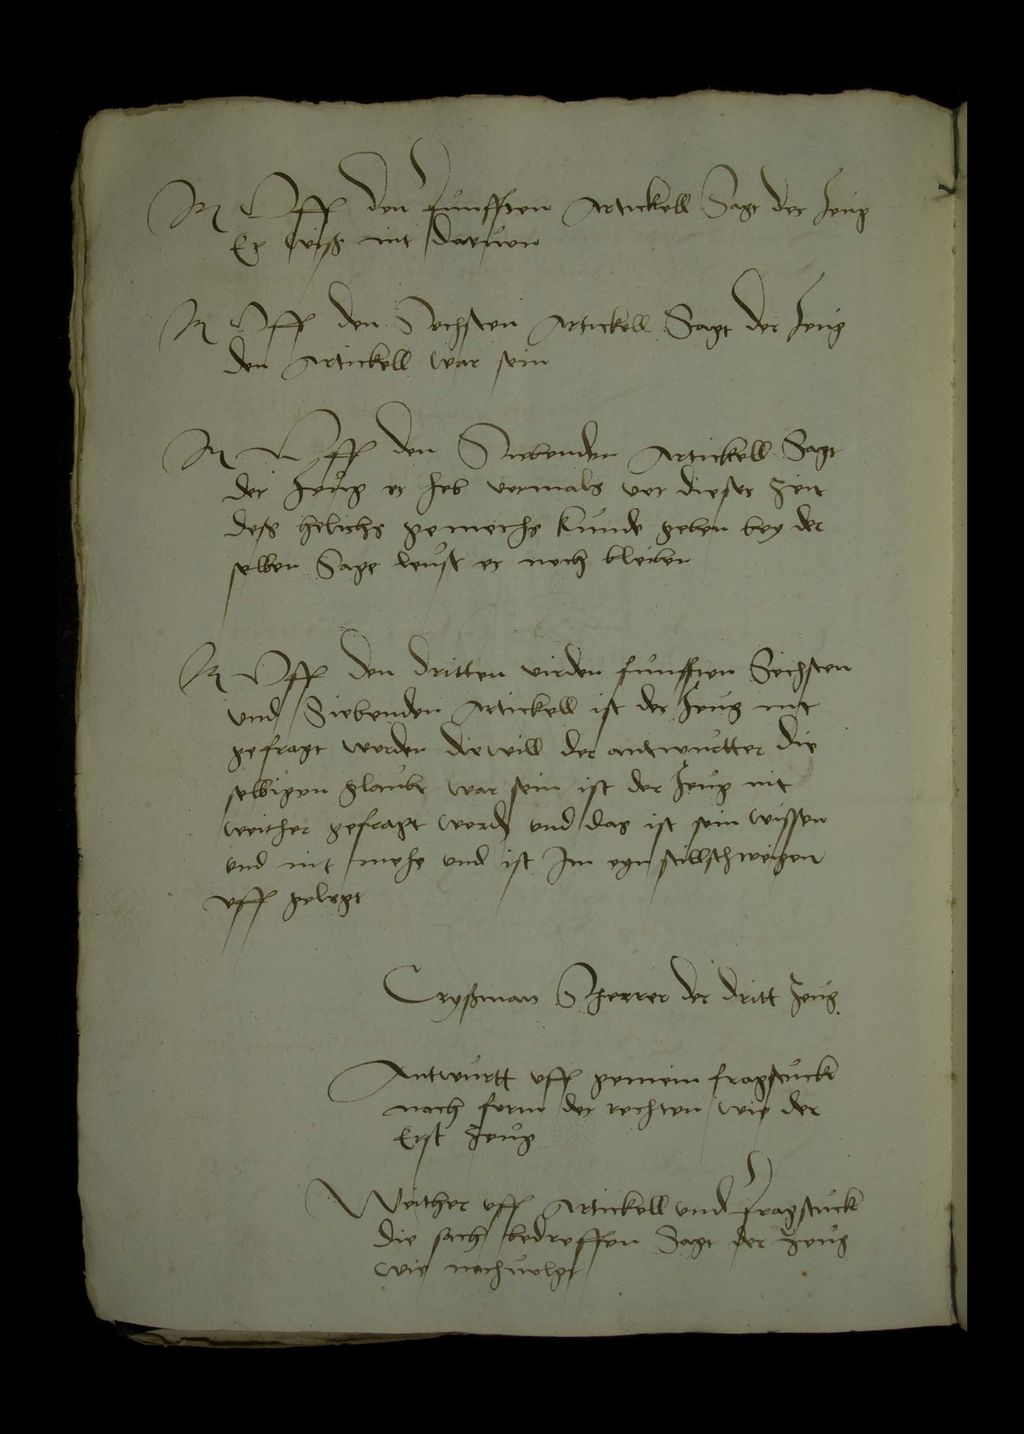 Uff den funfften Artickell Sagt der Zeug
Er wiß nit daruon
Uff den Sechsten Artickell Sagt der Zeug
den Artickell war sein
Uff den Siebenden Artickell Sagt
der Zeug er heb vormals vor dieser Zeit
deß gemechs Kunde geben bey der
selben Sage leust er noch bleiben
Uff den dritten virden funfften Sechsten
und Siebenden Artickell ist der Zeug nit
gefragt worden diewill der antwurtter die
selbigen glaubt war sein ist der Zeug nit
weither gefragt word und das ist sein wissen
und nit mehe und ist Im eyn stillschweigen
uff gelegt
Cryßman Scherrer der dritt Zeug
Antwurtt uff gemein fragstuck
nach form der rechten wie der
Erst Zeug
Weither uff Artickell und fragstuck
die sach bedreffen Sagt der Zeug
wie nachuolgt